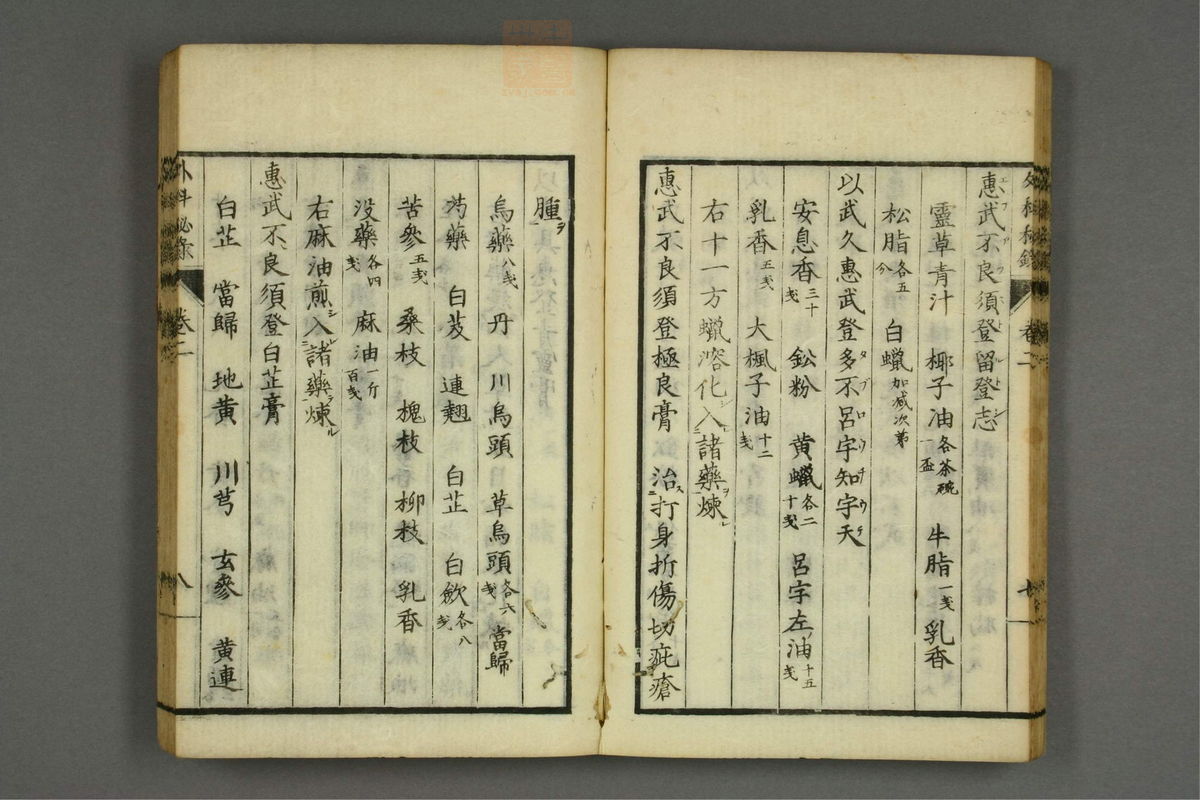 外科秘録　卷二　七
惠武不良須登留登志
靈草青汁　椰子油各茶碗一盃　牛脂一戔　乳香
松脂各五分　白蠟加减次第
以武久惠武登多不呂宇知宇天
安息香三十戔　鈆粉　黄蠟各二十戔　呂宇左油十五戔
乳香五戔　大楓子油十二戔
右十一方蠟溶化シ入レ諸藥ヲ煉ル
惠武不良須登極良膏　治ス打身折傷切疵瘡
腫ヲ
烏藥八戔　丹　川烏頭　草烏頭各六戔　當歸
芍藥　白芨　連翹　白芷　白歛各八戔
苦參五戔　桑枝　槐枝　柳枝　乳香
没藥各四戔　麻油一斤百戔
右麻油煎シ入ル諸藥ヲ煉ル
惠武不良須登白芷膏
白芷　當歸　地黄　川芎　玄參　黄連
外科秘录　卷二　八